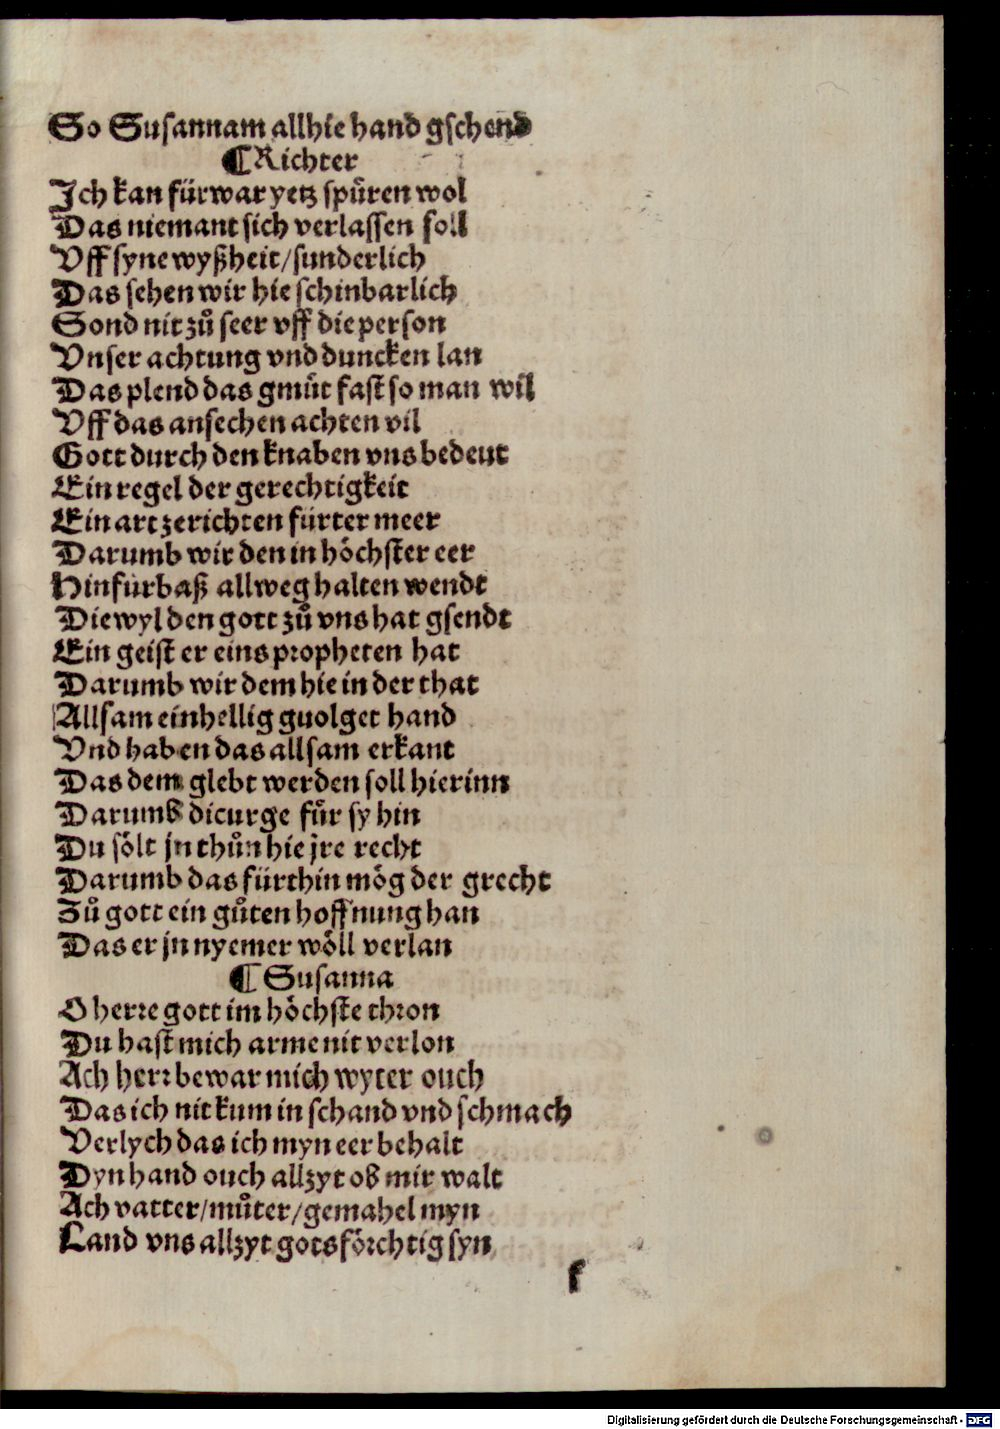 So Susannam allhie hand gschend
¶ Richter
Ich kan fürwar yetz spüren wol
Das niemant sich verlassen soll
Vff syne wyßheit/sunderlich
Das sehen wir hie schinbarlich
Sond nit zů seer vff die person
Vnser achtung vnd duncken lan
Das plend das gmüt fast so man wil
Vff das ansechen achten vil
Gott durch den knaben vns bedeut
Ein regel der gerechtigkeit
Ein art zerichten fürter meer
Darumb wir den in höchster eer
Hinfürbaß allweg halten wendt
Diewyl den gott zů vns hat gsendt
Ein geist er eins propheten hat
Darumb wir dem hie in der that
Allsam einhellig guolget hand
Vnd haben das allsam erkant
Das dem glebt werden soll hierinn
Darumb dicurge für sy hin
Du sölt jn thůn hie jre recht
Darumb das fürthin mög der grecht
Zů gott ein gůten hoffnung han
Das er jn nyemer wöll verlan
¶ Susanna
O herre gott im höchste thron
Du hast mich arme nit verlon
Ach herr bewar mich wyter ouch
Das ich nit kum in schand vnd schmach
Verlych das ich myn eer behalt
Dyn hand ouch allzyt ob mir walt
Ach vatter/můter/gemahel myn
Land vns allzyt gotsförchtig syn
k
Digitalisierung gefördert durch die Deutsche Forschungsgemeinschaft - DFG